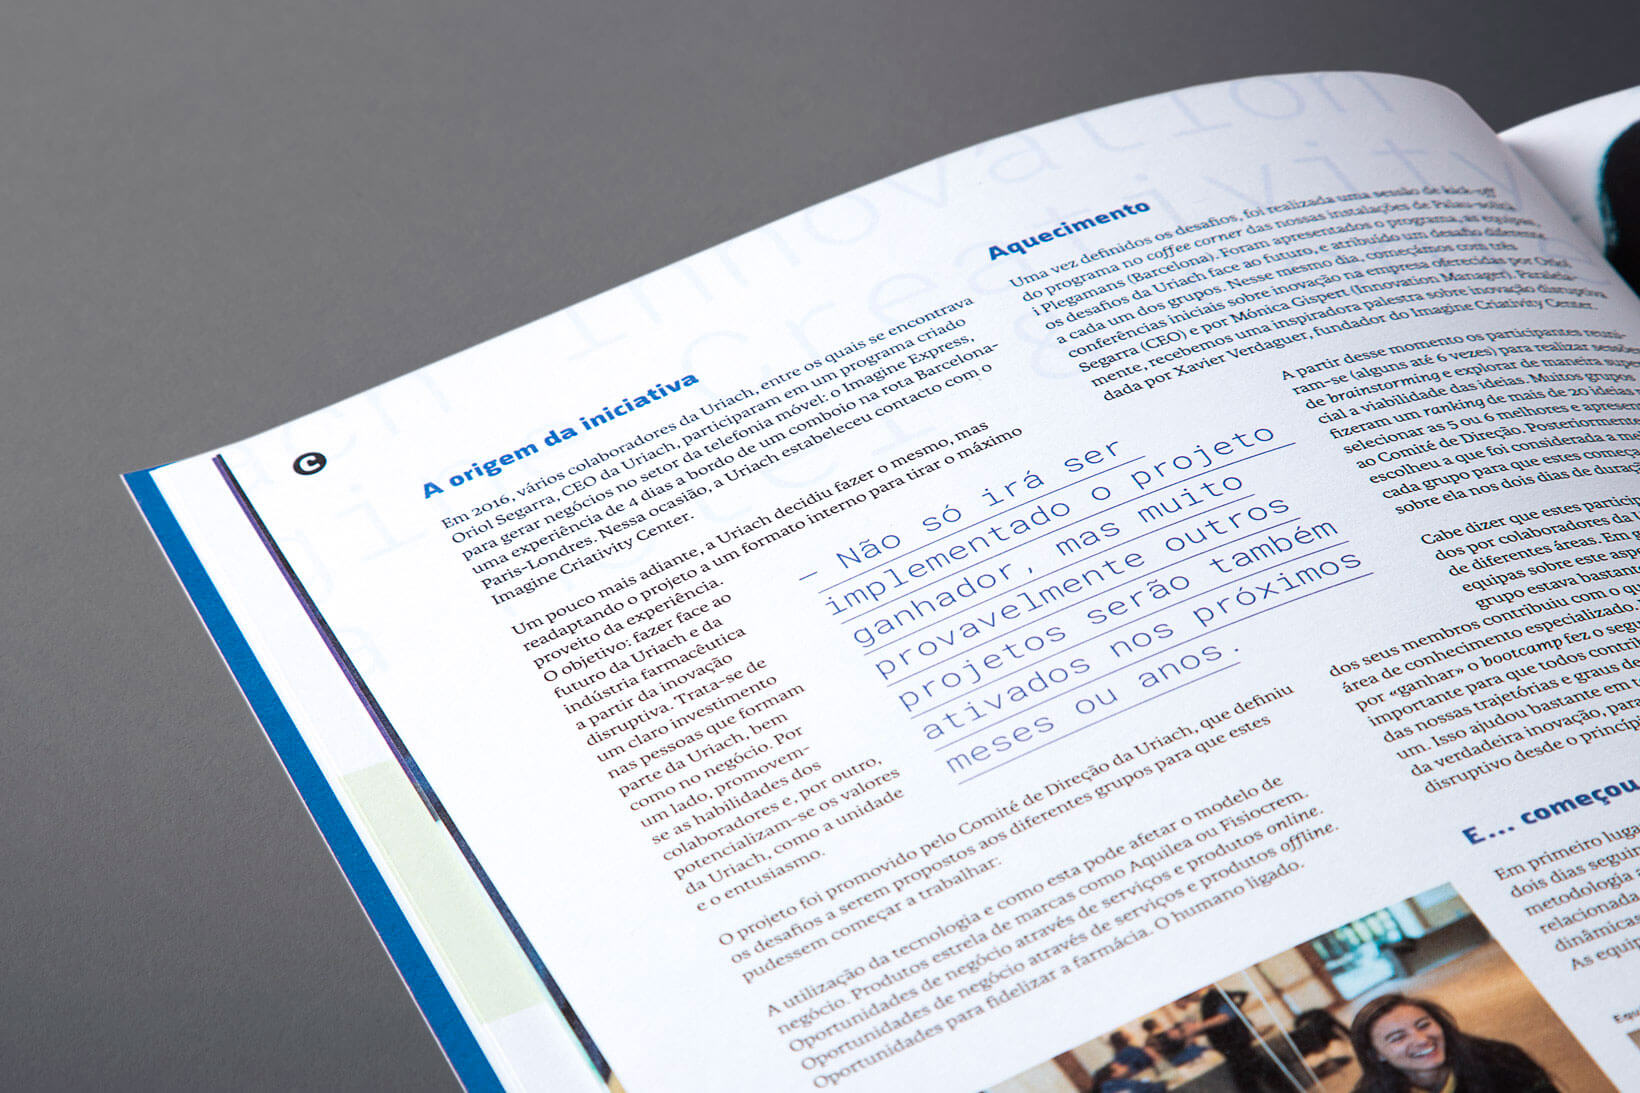 C
A origem da iniciativa
Em 2016, vários colaboradores da Uriach, entre os quais se encontrava
Oriol Segarra, CEO da Uriach, participaram em um programa criado
para gerar negócios no setor da telefonia móvel: o Imagine Express,
uma experiência de 4 dias a bordo de um comboio na rota Barcelona-
Paris-Londres. Nessa ocasião, a Uriach estabeleceu contacto com o
Imagine Criativity Center.
Um pouco mais adiante, a Uriach decidiu fazer o mesmo, mas
readaptando o projeto a um formato interno para tirar o máximo
proveito da experiência.
O objetivo: fazer face ao
futuro da Uriach e da
indústria farmacêutica
a partir da inovação
disruptiva. Trata-se de
um claro investimento
nas pessoas que formam
parte da Uriach, bem
como no negócio. Por
um lado, promovem-
se as habilidades dos
colaboradores e, por outro,
potencializam-se os valores
da Uriach, como a unidade
e o entusiasmo.
— Não só irá ser
implementado o projeto
ganhador, mas muito
provavelmente outros
projetos serão também
ativados nos próximos
meses ou anos.
O projeto foi promovido pelo Comité de Direção da Uriach, que definiu
os desafios a serem propostos aos diferentes grupos para que estes
pudessem começar a trabalhar:
A utilização da tecnologia e como esta pode afetar o modelo de
negócio. Produtos estrela de marcas como Aquilea ou Fisiocrem.
Oportunidades de negócio através de serviços e produtos online.
Oportunidades de negócio através de serviços e produtos offline.
Oportunidades para fidelizar a farmácia. O humano ligado.
Aquecimento
Uma vez definidos os desafios, foi realizada uma sessão de kick-off
do programa no coffee corner das nossas instalações de Palau-solità
i Plegamans (Barcelona). Foram apresentados o programa, as equipas,
os desafios da Uriach face ao futuro, e atribuído um desafio diferente
a cada um dos grupos. Nesse mesmo dia, começámos com três
conferências iniciais sobre inovação na empresa oferecidas por Oriol
Segarra (CEO) e por Mónica Gispert (Innovation Manager). Paralela-
mente, recebemos uma inspiradora palestra sobre inovação disruptiva
dada por Xavier Verdaguer, fundador do Imagine Criativity Center.
A partir desse momento os participantes reuni-
ram-se (alguns até 6 vezes) para realizar
de brainstorming e explorar de maneira
cial a viabilidade das ideias. Muitos grupos
fizeram um ranking de mais de 20 ideias
selecionar as 5 ou 6 melhores e
ao Comité de Direção.
escolheu a que foi considerada a
cada grupo para que estes
sobre ela nos dois dias de
Cabe dizer que estes
dos por colaboradores da
de diferentes áreas. Em
equipas sobre este
grupo estava
dos seus membros contribuiu com o
área de conhecimento especializado.
por «ganhar» o bootcamp fez o
importante para que todos
das nossas trajetórias e graus de
um. Isso ajudou bastante em
da verdadeira inovação,
disruptivo desde o
E... começou
Em primeiro
dois dias
metodologia
relacionada
dinâmicas
As